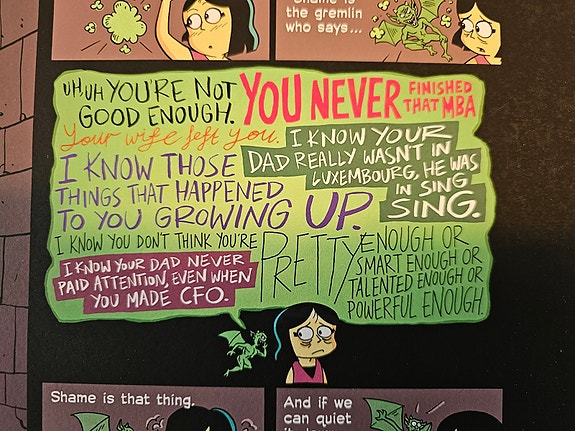 Shame is
the gremlin
who says...
UH, UH YOU'RE NOT
GOOD ENOUGH.
YOU NEVER
FINISHED
THAT MBA
Your wife left you.
I KNOW YOUR
DAD REALLY WASN'T IN
LUXEMBOURG, HE WAS
IN SING
SING.
I KNOW THOSE
THINGS THAT HAPPENED
TO YOU GROWING UP.
I KNOW YOU DON'T THINK YOU'RE
PRETTY
ENOUGH OR
SMART ENOUGH OR
TALENTED ENOUGH OR
POWERFUL ENOUGH.
I KNOW YOUR DAD NEVER
PAID ATTENTION, EVEN WHEN
YOU MADE CFO.
Shame is that thing.
And if we
can quiet